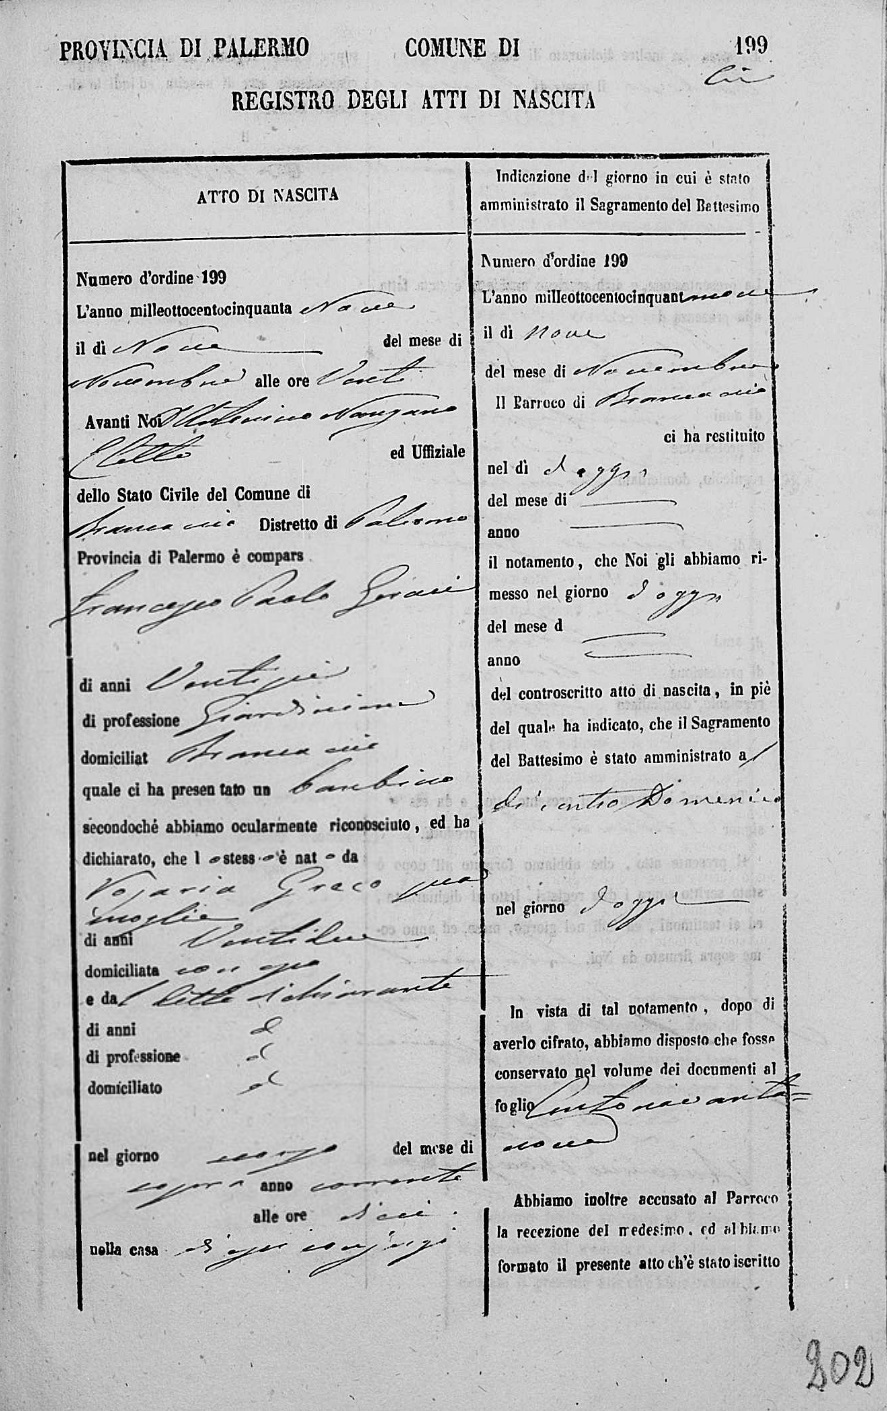 PROVINCIA DI PALERMO COMUNE DI 199
REGISTRO DEGLI ATTI DI NASCITA
ATTO DI NASCITA
Numero d'ordine 199
L'anno milleottocentocinquanta Nove
il dì Nove del mese di
Novembre alle ore Venti
Avanti Noi
Eletto ed Uffiziale
dello Stato Civile del Comune di
Brancaccio Distretto di Palermo
Provincia di Palermo è compars
Francesco Paolo Geraci
di anni Ventisei
di professione Giardiniere
domiciliat Brancaccio
quale ci ha presentato un bambino
secondochè abbiamo ocularmente riconosciuto, ed ha
dichiarato, che l o stess o è nat o da
Rosaria Greco sua
moglie
di anni Ventidue
domiciliata con esso
e da l detto dichiarante
di anni d
di professione d
domiciliato d
nel giorno come del mese di
sopra anno corrente
alle ore dieci
nella casa di essi conjugi
Indicazione del giorno in cui è stato
amministrato il Sagramento del Battesimo
Numero d'ordine 199
L'anno milleottocentocinquantanove
il dì nove
del mese di Novembre
Il Parroco di Brancaccio
ci ha restituito
nel dì d'oggi
del mese di
anno
il notamento, che Noi gli abbiamo ri-
messo nel giorno d'oggi
del mese d
anno
del controscritto atto di nascita, in piè
del quale ha indicato, che il Sagramento
del Battesimo è stato amministrato a
Domenico
nel giorno d'oggi
In vista di tal notamento, dopo di
averlo cifrato, abbiamo disposto che fosse
conservato nel volume dei documenti al
foglio Centonovanta=
nove
Abbiamo inoltre accusato al Parroco
la recezione del medesimo, ed abbiamo
formato il presente atto ch'è stato iscritto
202